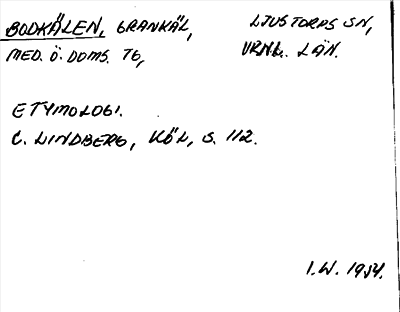 BODKÄLEN, GRANKÄL, LJUSTORPS SN,
MED. Ö. DOMS. 76, VRNL. LÄN.
ETYMOLOGI.
C. LINDBERG, KÖL, S. 112.
I.W. 1954.